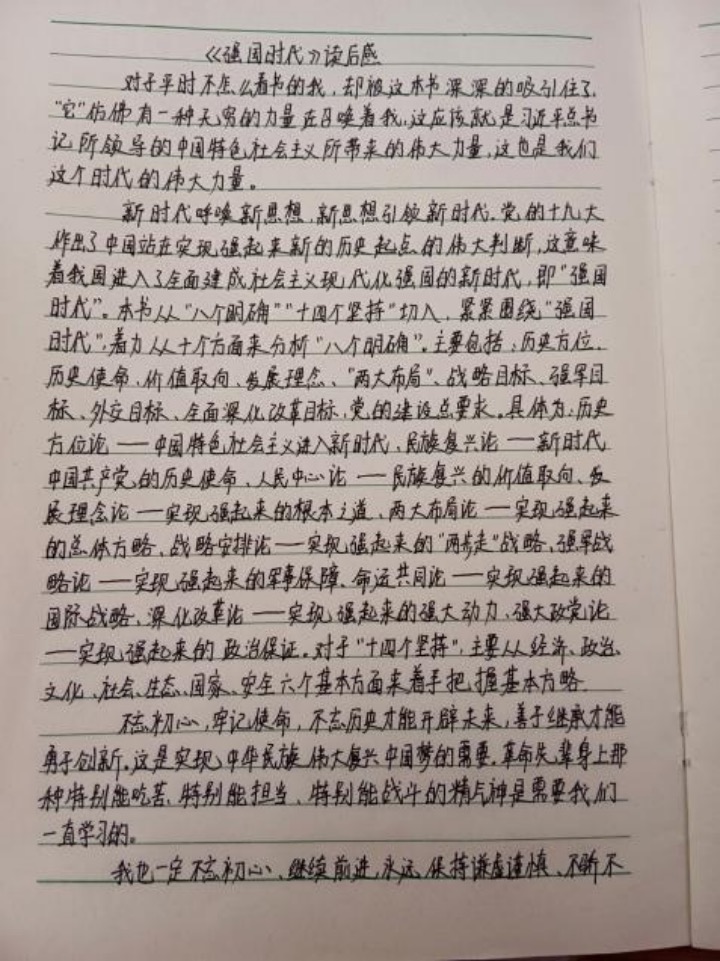 《强国时代》读后感
对于平时不怎么看书的我，却被这本书深深的吸引住了，
"它"仿佛有一种无穷的力量在召唤着我，这应该就是习近平总书
记所领导的中国特色社会主义所带来的伟大力量，这也是我们
这个时代的伟大力量。
新时代呼唤新思想，新思想引领新时代。党的十九大
作出了中国站在实现强起来新的历史起点的伟大判断，这意味
着我国进入了全面建成社会主义现代化强国的新时代，即"强国
时代"。本书从"八个明确""十四个坚持"切入，紧紧围绕"强国
时代"，着力从十个方面来分析"八个明确"。主要包括：历史方位、
历史使命、价值取向、发展理念、"两大布局"、战略目标、强军目
标、外交目标、全面深化改革目标，党的建设总要求。具体为：历史
方位论——中国特色社会主义进入新时代、民族复兴论——新时代
中国共产党的历史使命、人民中心论——民族复兴的价值取向、发
展理念论——实现强起来的根本之道、两大布局论——实现强起来
的总体方略、战略安排论——实现强起来的"两步走"战略、强军战
略论——实现强起来的军事保障、命运共同论——实现强起来的
国际战略、深化改革论——实现强起来的强大动力、强大政党论
——实现强起来的政治保证。对于"十四个坚持"，主要从经济、政治、
文化、社会、生态、国家、安全六个基本方面来着手把握基本方略。
不忘初心，牢记使命，不忘历史才能开辟未来，善于继承才能
勇于创新。这是实现中华民族伟大复兴中国梦的需要。革命先辈身上那
种特别能吃苦、特别能担当、特别能战斗的精气神是需要我们
一直学习的。
我也一定不忘初心、继续前进，永远保持谦虚谨慎、不骄不